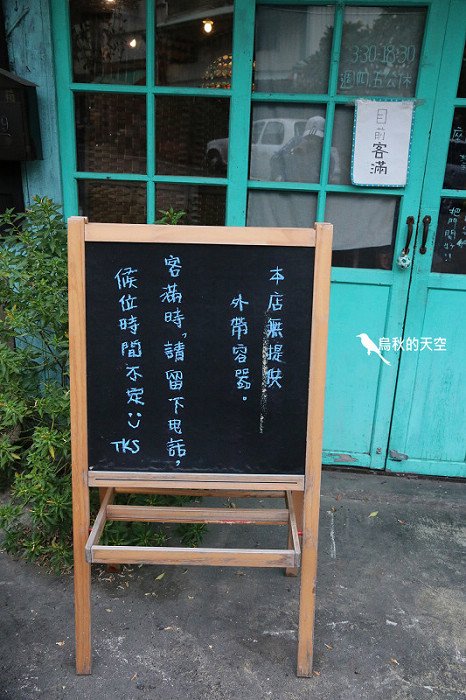 3:30-18:30
週四五公休
目前客滿
本店無提供
外帶容器。
客滿時,請留下電話,
候位時間不定:)
TKS
烏秋的天空